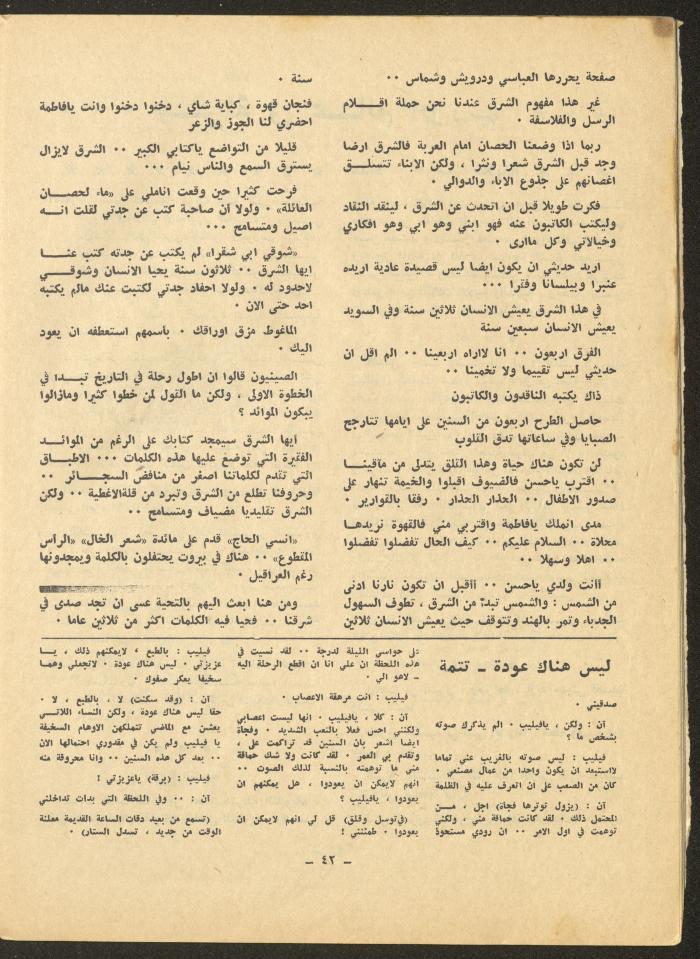 صفحة يحررها العباسي ودرويش وشماس ٠٠
غير هذا مفهوم الشرق عندنا نحن حملة اقـــلام
الرسل والفلاسفة ٠
ربما اذا وضعنا الحصان امام العربة فالشرق ارضا
وجد قبل الشرق شعرا ونثرا ، ولكن الابناء تتسلـــق
اغصانهم على جذوع الاباء والدوالي ٠
فكرت طويلا قبل ان اتحدث عن الشرق ، لينقد النقاد
وليكتب الكاتبون عنه فهو ابني وهو ابي وهو افكاري
وخيالاتي وكل ماارى ٠
اريد حديثي ان يكون ايضا ليس قصيدة عادية اريده
عنبرا وبيلسانا وفقرا ٠٠٠
في هذا الشرق يعيش الانسان ثلاثين سنة وفي السويد
يعيش الانسان سبعين سنة
الفرق اربعون ٠٠ انا لااراه اربعينا ٠٠ الم اقل ان
حديثي ليس تقييما ولا تخمينا ٠٠
ذاك يكتبه الناقدون والكاتبون
حاصل الطرح اربعون من السنين على ايامها تتارجح
الصبايا وفي ساعاتها تدق القلوب
لن تكون هناك حياة وهذا القلق يتدلى من مآقينــا
٠٠ اقترب ياحسن فالضيوف اقبلوا والخيمة تنهار على
صدور الاطفال ٠٠ الحذار الحذار ٠ رفقا بالقوارير ٠
مدى انملك يافاطمة واقتربي مني فالقهوة نريدهــا
محلاة ٠٠ السلام عليكم ٠٠ كيف الحال تفضلوا تفضلوا
٠٠ اهلا وسهلا ٠٠
أأنت ولدي ياحسن ٠٠ أأقبل ان تكون نارنا ادنى
من الشمس : والشمس تبدأ من الشرق ، تطوف السهول
الجدباء وتمر بالهند وتتوقف حيث يعيش الانسان ثلاثين
سنة ٠
فنجان قهوة ، كباية شاي ، دخنوا دخنوا وانت يافاطمة
احضري لنا الجوز والزعر
قليلا من التواضع ياكتابي الكبير ٠٠ الشرق لايزال
يسترق السمع والناس نيام ٠٠٠
فرحت كثيرا حين وقعت اناملي على «ماء لحصــان
العائلة» ٠ ولولا أن صاحبة كتب عن جدتي لقلت انــه
اصيل ومتسامح ٠٠٠
«شوقي ابي شقرا» لم يكتب عن جدته كتب عنــا
ايها الشرق ٠٠ ثلاثون سنة يحيا الانسان وشوقـــي
لاحدود له ٠ ولولا احفاد جدتي لكتبت عنك مالم يكتبه
احد حتى الان ٠
الماغوط مزق اوراقك ٠ باسمهم استعطفه ان يعود
اليك ٠
الصينيون قالوا ان اطول رحلة في التاريخ تبــدا في
الخطوة الاولى ، ولكن ما القول لمن خطوا كثيرا ومازالوا
يبكون الموائد ؟
أيها الشرق سيمجد كتابك على الرغم من الموائــد
الفقيرة التي توضع عليها هذه الكلمات ٠٠٠ الاطبــاق
التي تقدم لكلماتنا اصغر من منافض السجــائر ٠٠
وحروفنا تطلع من الشرق وتبرد من قلةالاغطية ٠٠ ولكن
الشرق تقليديا مضياف ومتسامح ٠٠
«انسي الحاج» قدم على مائدة «شعر الخال» «الرأس
المقطوع» ٠٠ هناك في بيروت يحتفلون بالكلمة ويمجدونها
رغم العراقيل ٠
ومن هنا ابعث اليهم بالتحية عسى ان تجد صدى في
شرقنا ٠٠ فحيا فيه الكلمات اكثر من ثلاثين عاما ٠
ليس هناك عودة ـ تتمة
صدقيني ٠
آن : ولكن ، يافيليب ٠ الم يذكرك صوته
بشخص ما ؟
فيليب : ليس صوته بالغريب عني تماما
لااستبعد ان يكون واحدا من عمال مصنعي ٠
كان من الصعب على ان اتعرف عليه في الظلمة
آن : (يزول توترها فجأة) اجل ، مــن
المحتمل ذلك ٠ لقد كانت حماقة مني ، ولكني
توهمت في اول الامر ٠٠ ان رودي مستحوذ
على حواسي الليلة لدرجة ٠٠ لقد نسيت في
هذه اللحظة ان علي انا ان اقطع الرحلة اليه
ـ لاهو الي ٠
فيليب : انت مرهقة الاعصاب ٠
آن : كلا ، يافيليب ٠ انها ليست اعصابي
ولكنني احس فعلا بالتعب الشديد ٠ وفجأة
ايضا اشعر بان السنين قد تراكمت على ،
وتقدم بي العمر ٠ لقد كانت ولا شك حماقة
مني ما توهمته بالنسبة لذلك الصوت ٠٠
انهم لايمكن ان يعودوا ، هل يمكنهم ان
يعودوا ، يافيليب ؟
(في توسل وقلق) قل لي انهم لايمكن ان
يعودوا ٠ طمئنني !
فيليب : بالطبع ، لايمكنهم ذلك ، يــا
عزيزتي ٠ ليس هناك عودة ٠ لاتجعلي وهمــا
سخيفا يعكر صفوك ٠
آن : (وقد سكنت) لا ، بالطبع ، لا ٠
حقا ليس هناك عودة ، ولكن النساء اللاتــي
يعشن مع الماضي تتملكهن الاوهام السخيفة
يا فيليب ولم يكن في مقدوري احتمالها الان
٠٠ بعد كل هذه السنين ٠٠ وانا محروقة منه
فيليب : (برقة) ياعزيزتي !
آن : ٠٠ وفي اللحظة التي بدات تداخلني
(تسمع من بعيد دقات الساعة القديمة معلنة
الوقت من جديد ، تسدل الستار) ٠
ـ ٤٢ ـ